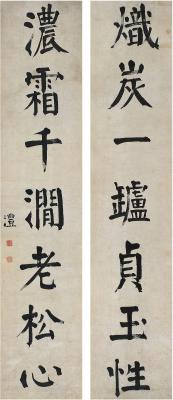 熾炭一鑪貞玉性
濃霜千澗老松心
澧